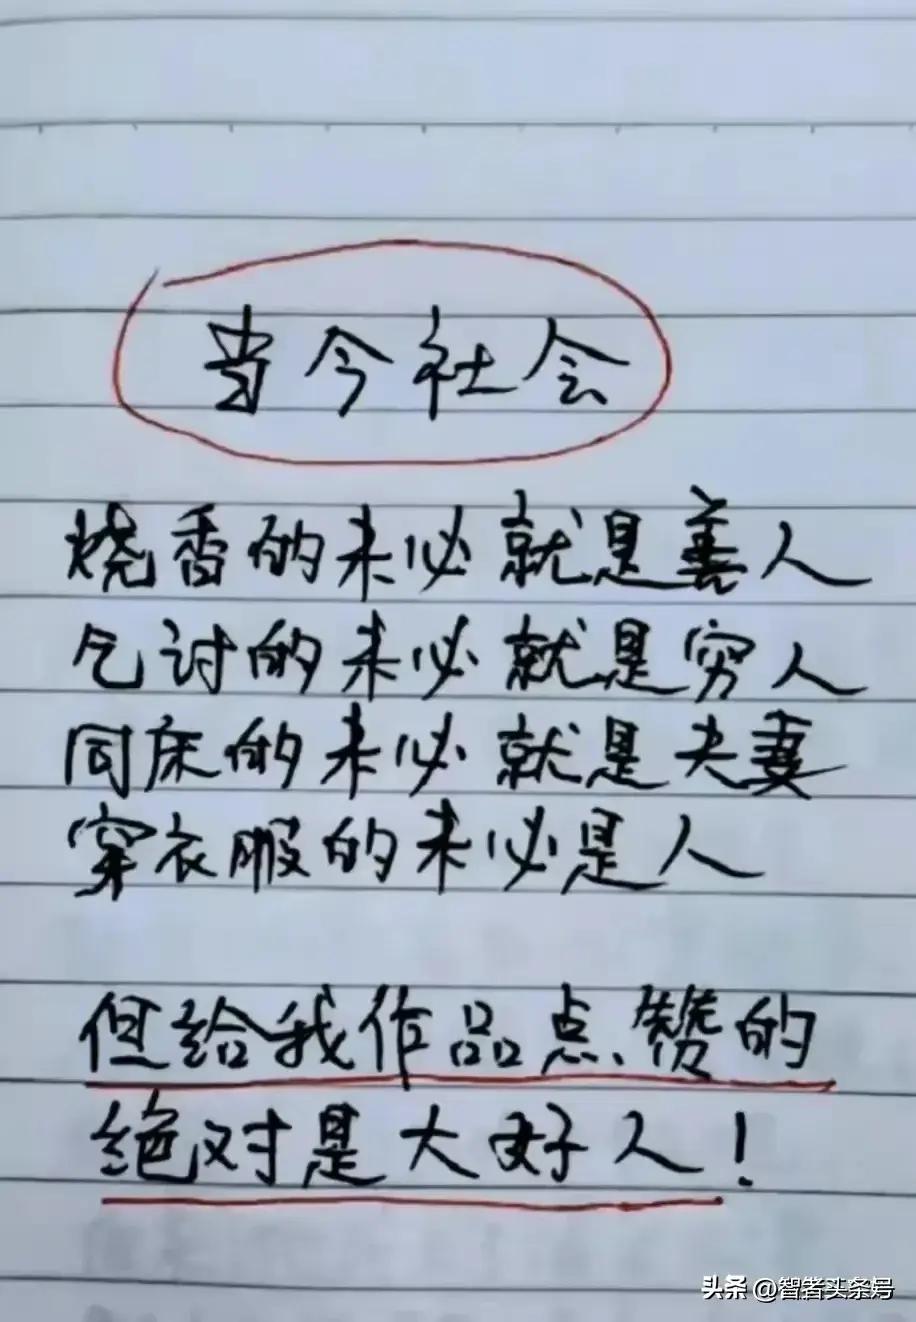 当今社会
烧香的未必就是善人
乞讨的未必就是穷人
同床的未必就是夫妻
穿衣服的未必是人
但给我作品点赞的
绝对是大好人！
头条 @智者头条号